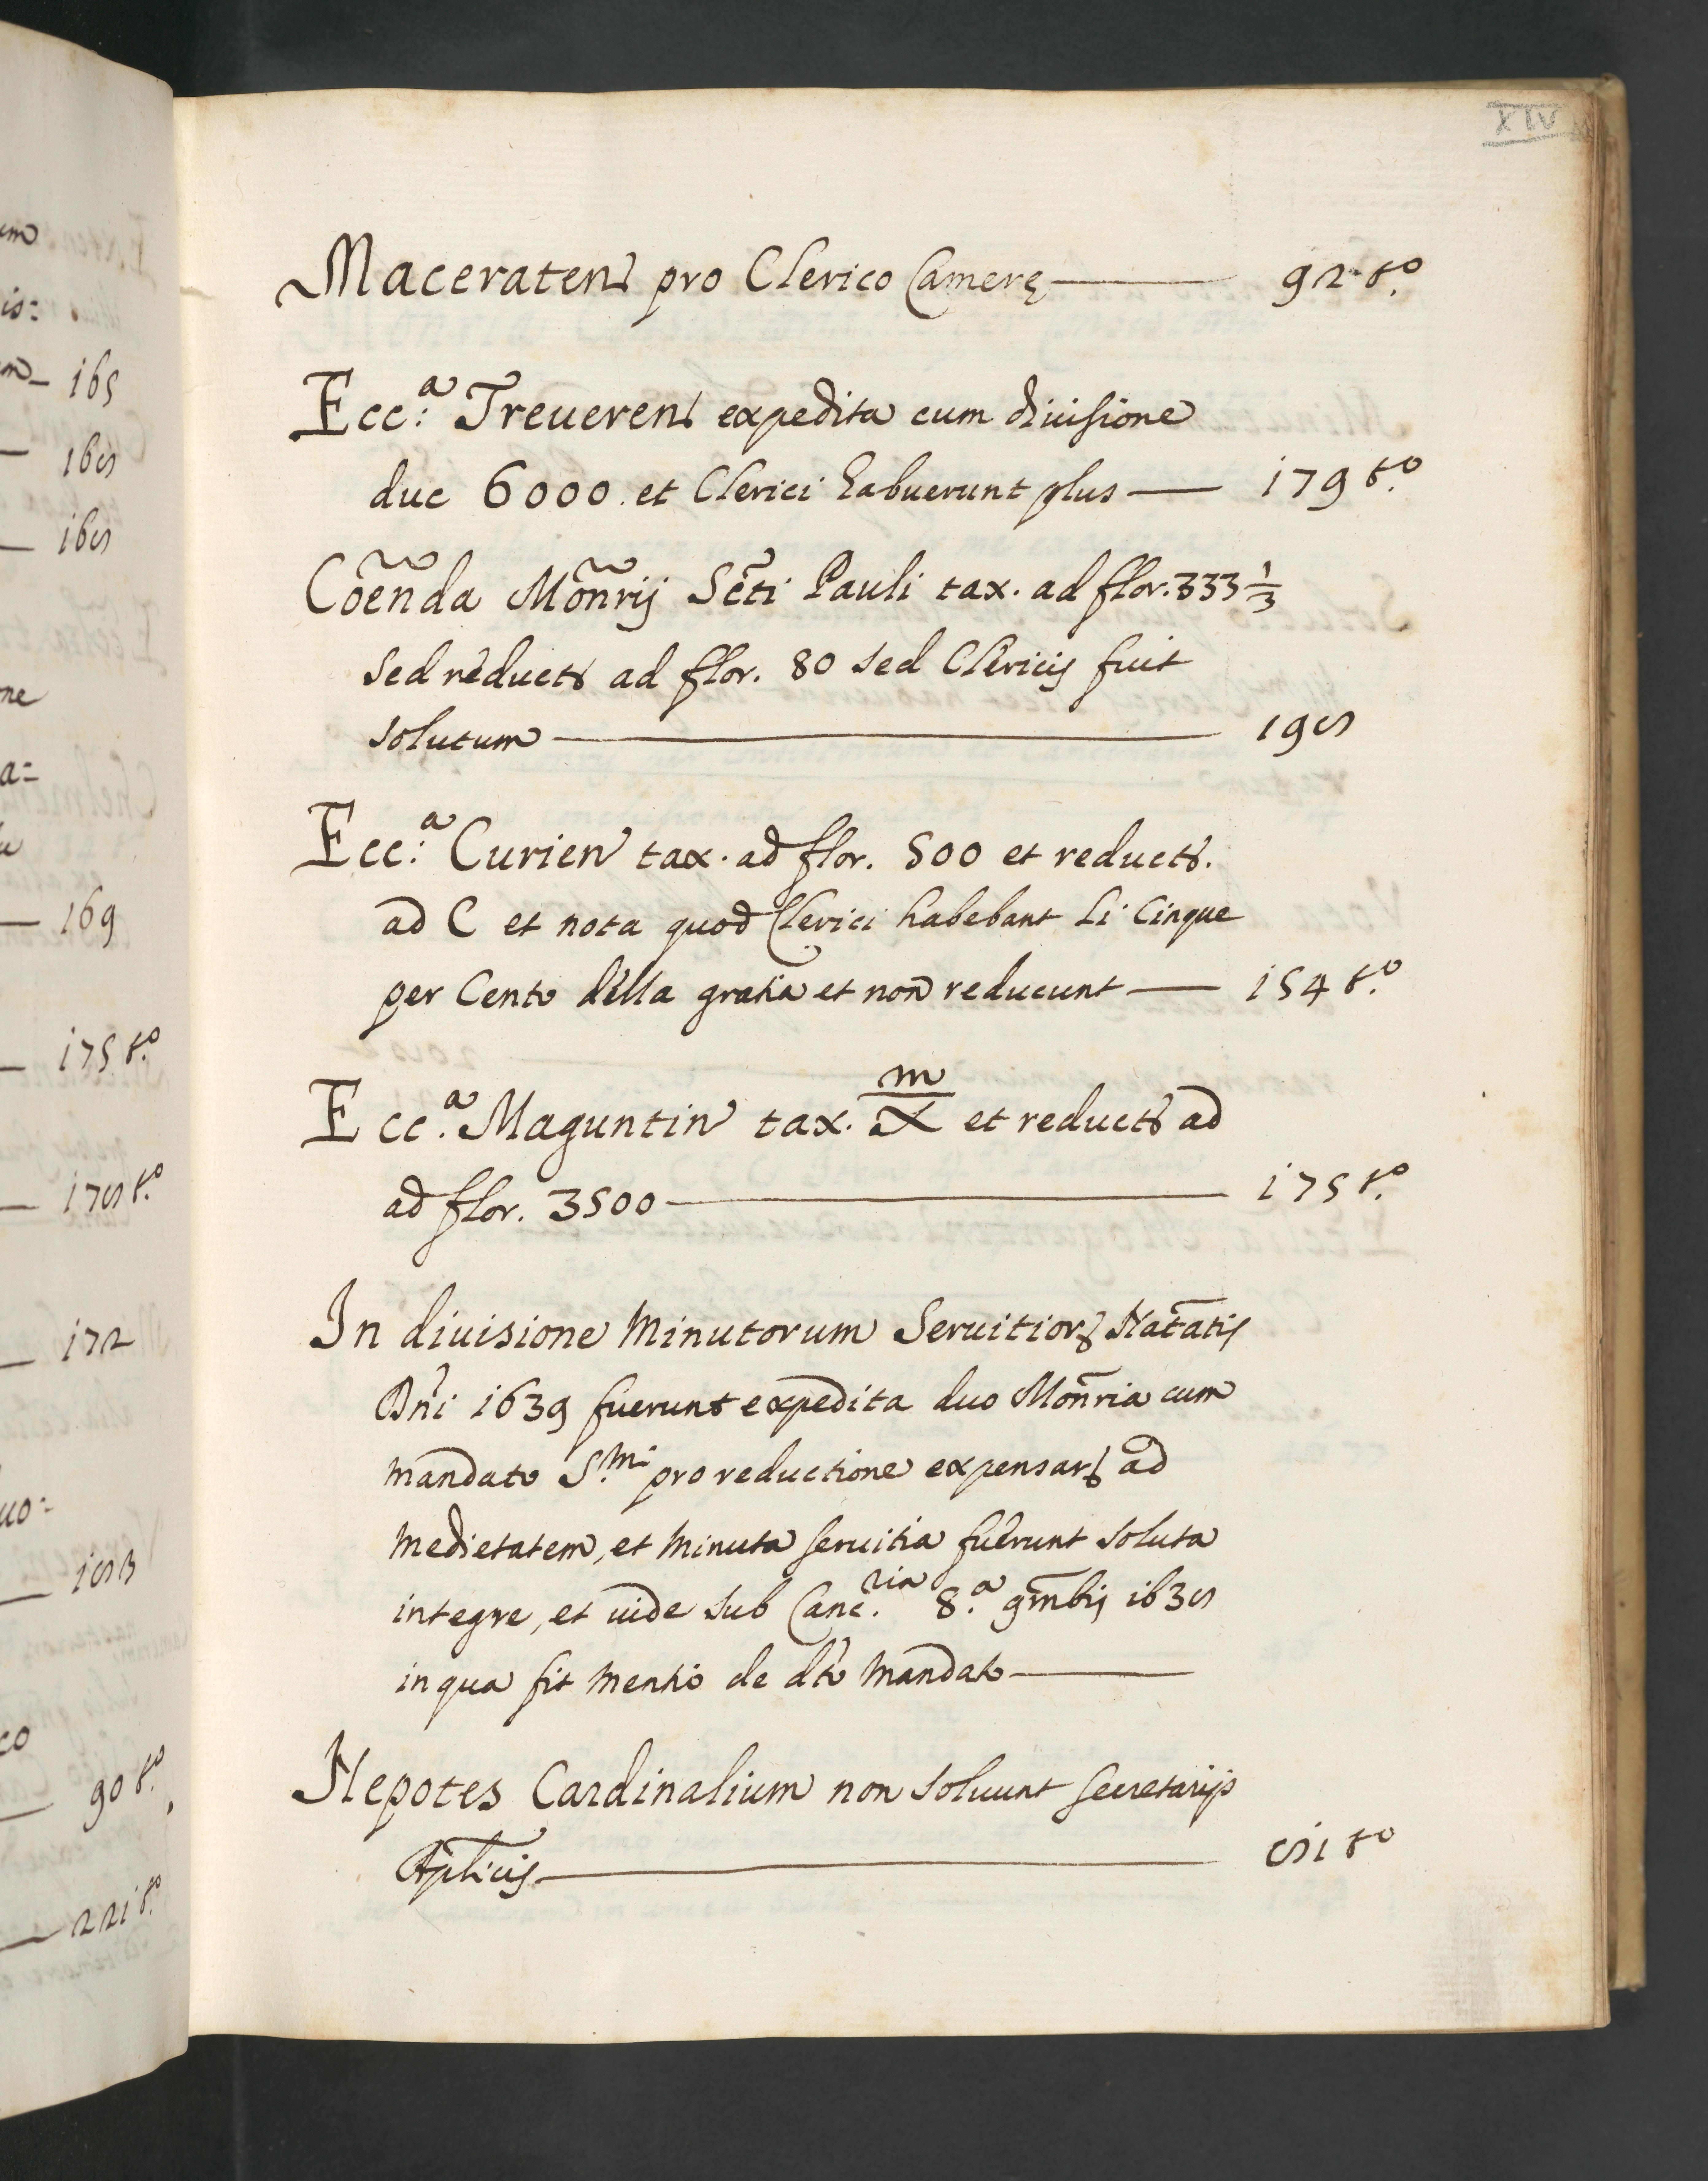 XIV
Maceraten pro Clerico Camerę — 92 tº
Ecc:ª Treueren expedita cum diuisione
duc 6000. et Clerici habuerunt plus — 179 tº
Cõenda Mõnrij Scti Pauli tax. ad flor. 333 1/3
sed reducts ad flor. 80 sed Clericis fuit
solutum — 198
Ecc:ª Curien tax. ad flor. 500 et reducts.
ad C et nota quod Clerici habebant li Cinque
per Cento della gratia et non reducunt — 154 tº
Ecc.ª Maguntin tax. m/X et reducts ad
ad flor. 3500 — 175 tº
In diuisione Minutorum Seruitior Natatis
Dni 1639 fuerunt expedita duo Monria cum
mandato S.mi pro reductione expensar ad
medietatem, et minuta seruitia fuerunt soluta
integre, et uide sub Canc.ria 8.ª 9mbris 1638
in qua fit mentio de dto mandato —
Nepotes Cardinalium non soluunt secretarijs
Aplicis — 81 tº
165
168
168
169
175 tº
178 tº
172
183
90 tº
221 tº